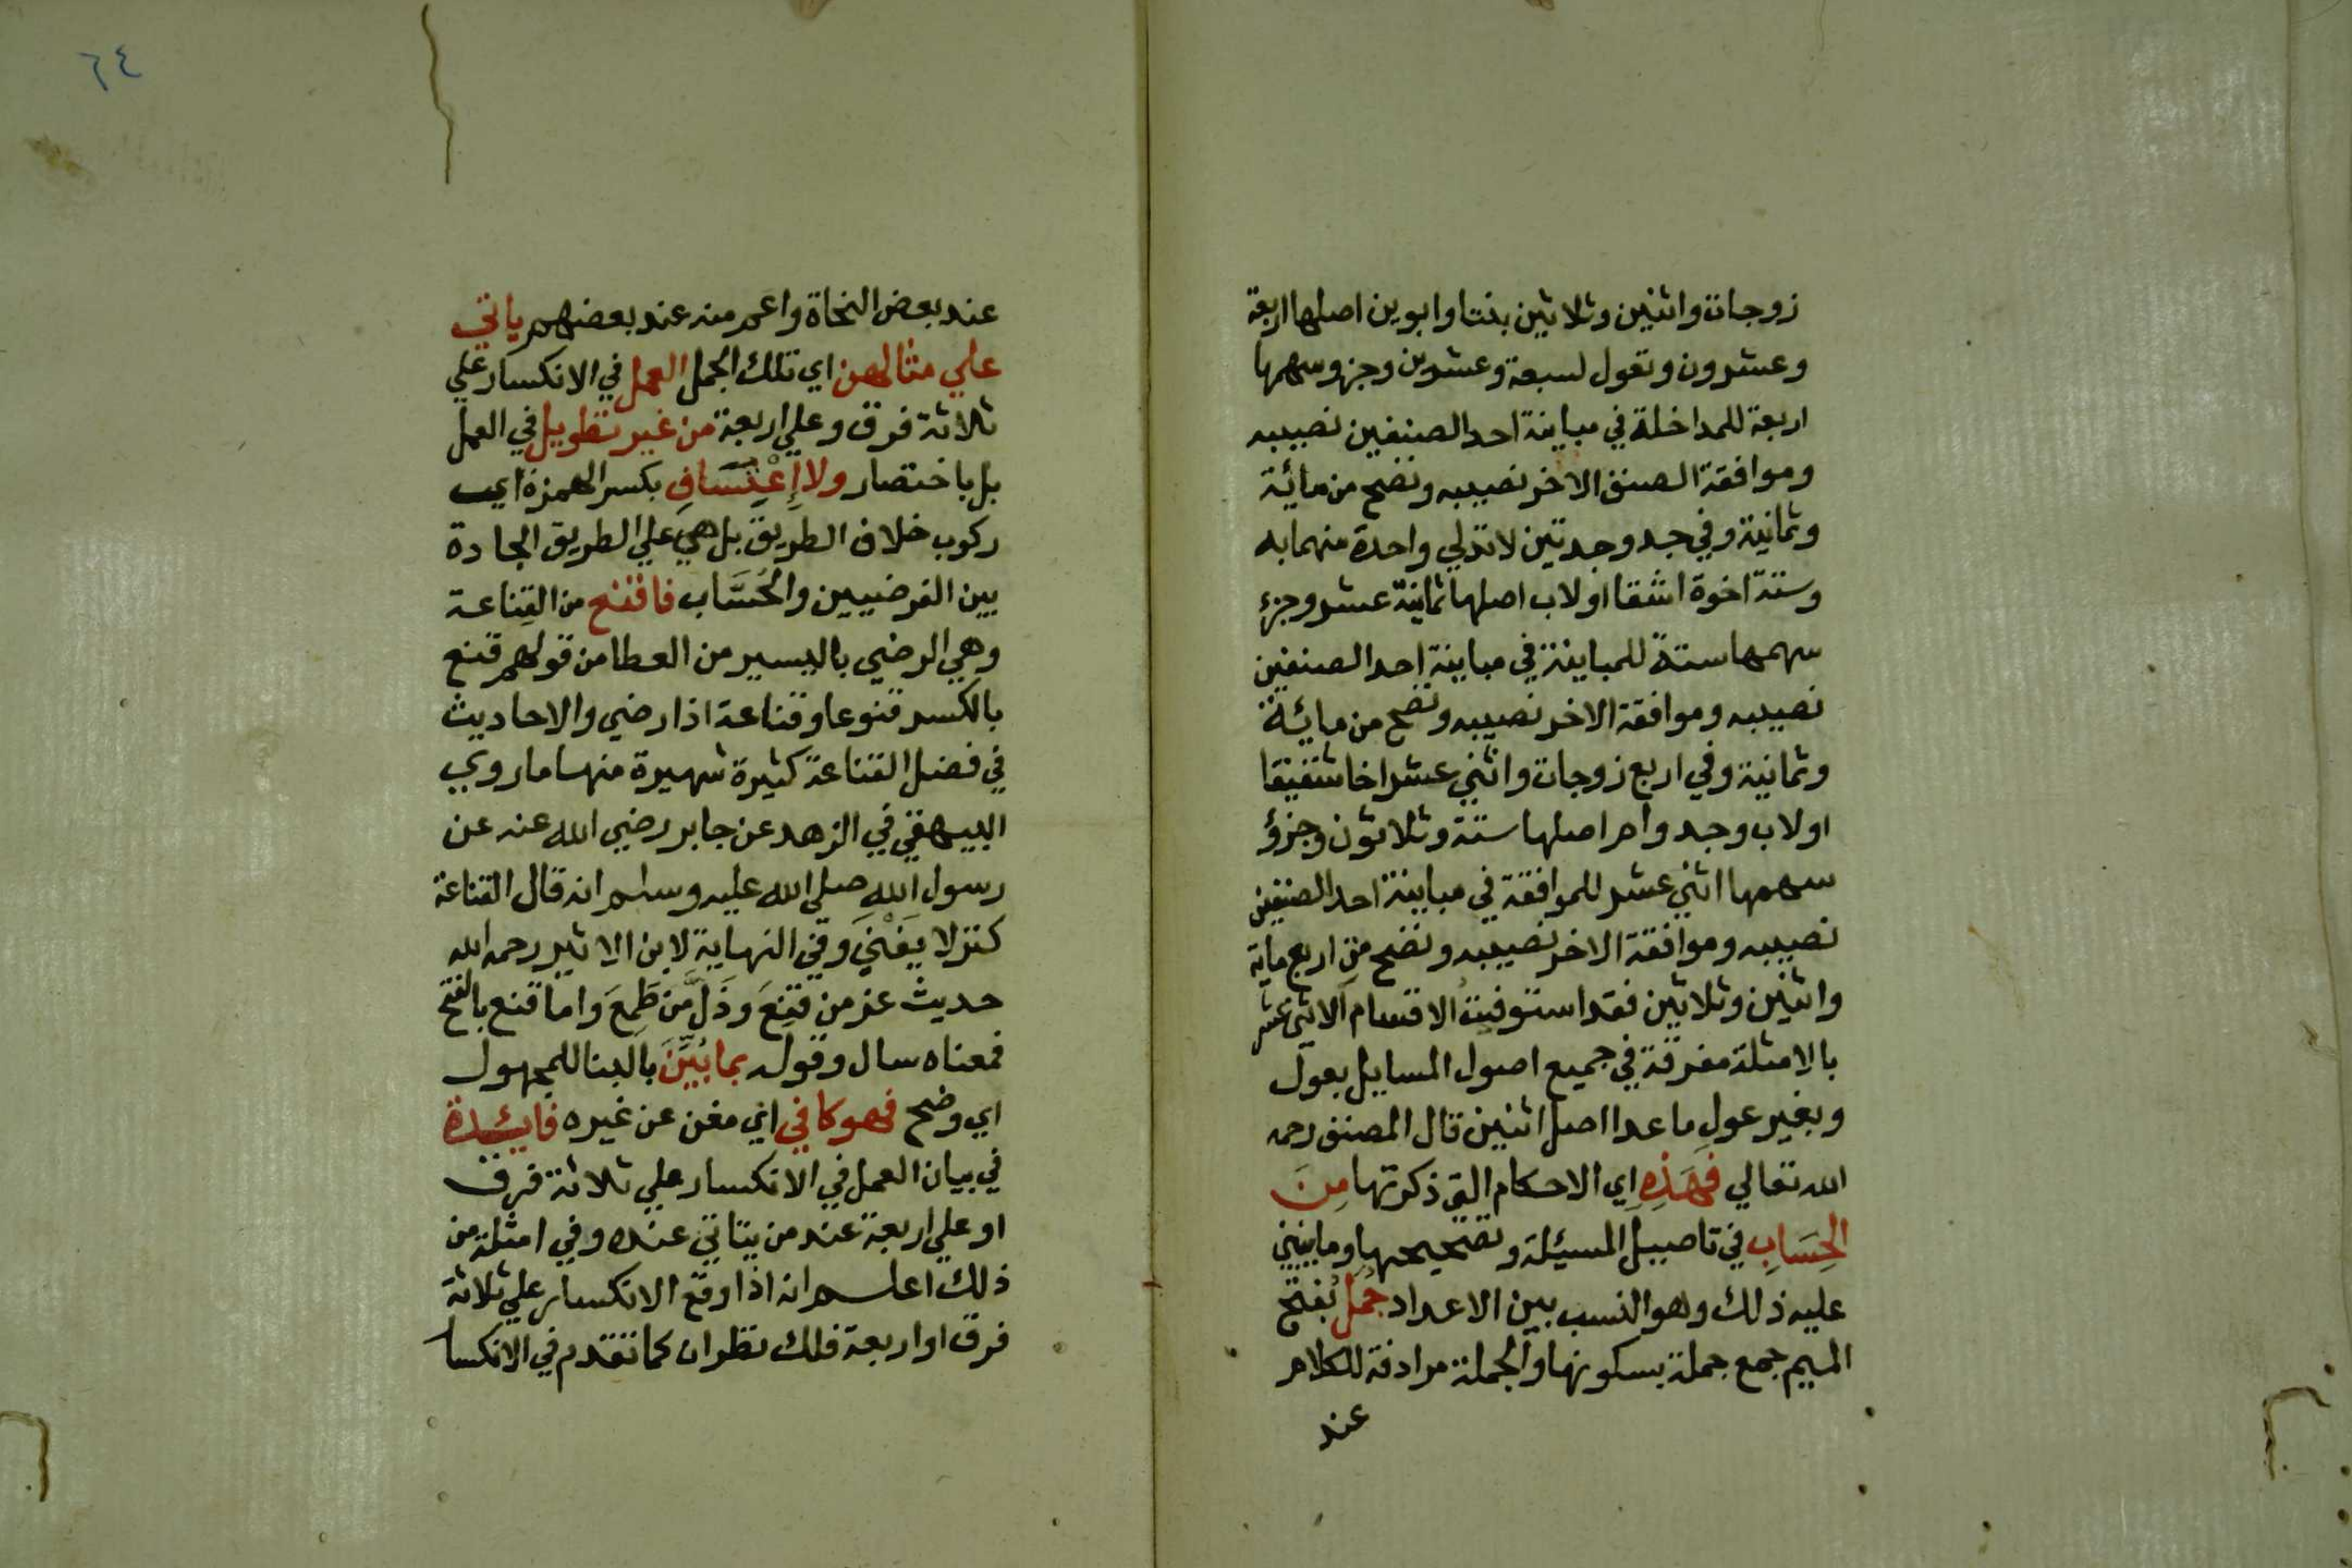 زوجات واثنين وثلاثين بنتا وابوين اصلها اربعة
وعشرون وتعول لسبعة وعشرين وجزء سهمها
اربعة للمداخلة في مباينة احد الصنفين نصيبه
وموافقة الصنف الاخر نصيبه وتصح من مائة
وثمانية وفي جد وجدتين لا تدلي واحدة منهما به
وستة اخوة اشقا او لاب اصلها ثمانية عشر وجزء
سهمها ستة للمباينة في مباينة احد الصنفين
نصيبه وموافقة الاخر نصيبه وتصح من مائة
وثمانية وفي اربع زوجات واثني عشر اخا شقيقا
او لاب وجد وام اصلها ستة وثلاثون وجزؤ
سهمها اثني عشر للموافقة في مباينة احد الصنفين
نصيبه وموافقة الاخر نصيبه وتصح من اربع ماية
واثنين وثلاثين فقد استوفيت الاقسام الاثني عشر
بالامثلة مفرقة في جميع اصول المسايل بعول
وبغير عول ما عدا اصل اثنين قال المصنف رحمه
الله تعالي فهَذِهِ اي الاحكام التي ذكرتها مِنَ
الحِسَابِ في تاصيل المسئلة وتصحيحها وما ينبني
عليه ذلك وهو النسب بين الاعداد جُمَلٌ بفتح
الميم جمع جملة بسكونها والجملة مرادفة للكلام
عند
٦٤
عند بعض النحاة واعم منه عند بعضهم ياتي
علي مثالهن اي تلك الجمل العمل في الانكسار علي
ثلاثة فرق وعلي اربعة من غير تطويل في العمل
بل باختصار ولا إِعْتِسَافِ بكسر الهمزة اي
ركوب خلاف الطريق بل هي علي الطريق الجادة
بين الفرضيين والحُسَّاب فاقنع من القِناعة
وهي الرضي باليسير من العطا من قولهم قنع
بالكسر قنوعا وقناعة اذا رضي والاحاديث
في فضل القناعة كثيرة شهيرة منها ما روي
البيهقي في الزهد عن جابر رضي الله عنه عن
رسول الله صلي الله عليه وسلم انه قال القناعة
كنز لا يَفْنَي وفي النهاية لابن الاثير رحمه الله
حديث عز من قَنِعَ وذَلَّ مَن طَمِعَ واما قنع بالفتح
فمعناه سال وقوله بما بُيِّنَ بالبنا للمجهول
اي وضح فهو كافي اي مغن عن غيره فايئدة
في بيان العمل في الانكسار علي ثلاثة فرق
او علي اربعة عند من يتاتي عنده وفي امثلة من
ذلك اعلم انه اذا وقع الانكسار علي ثلاثة
فرق او اربعة فلك نظران كما تقدم في الانكسا